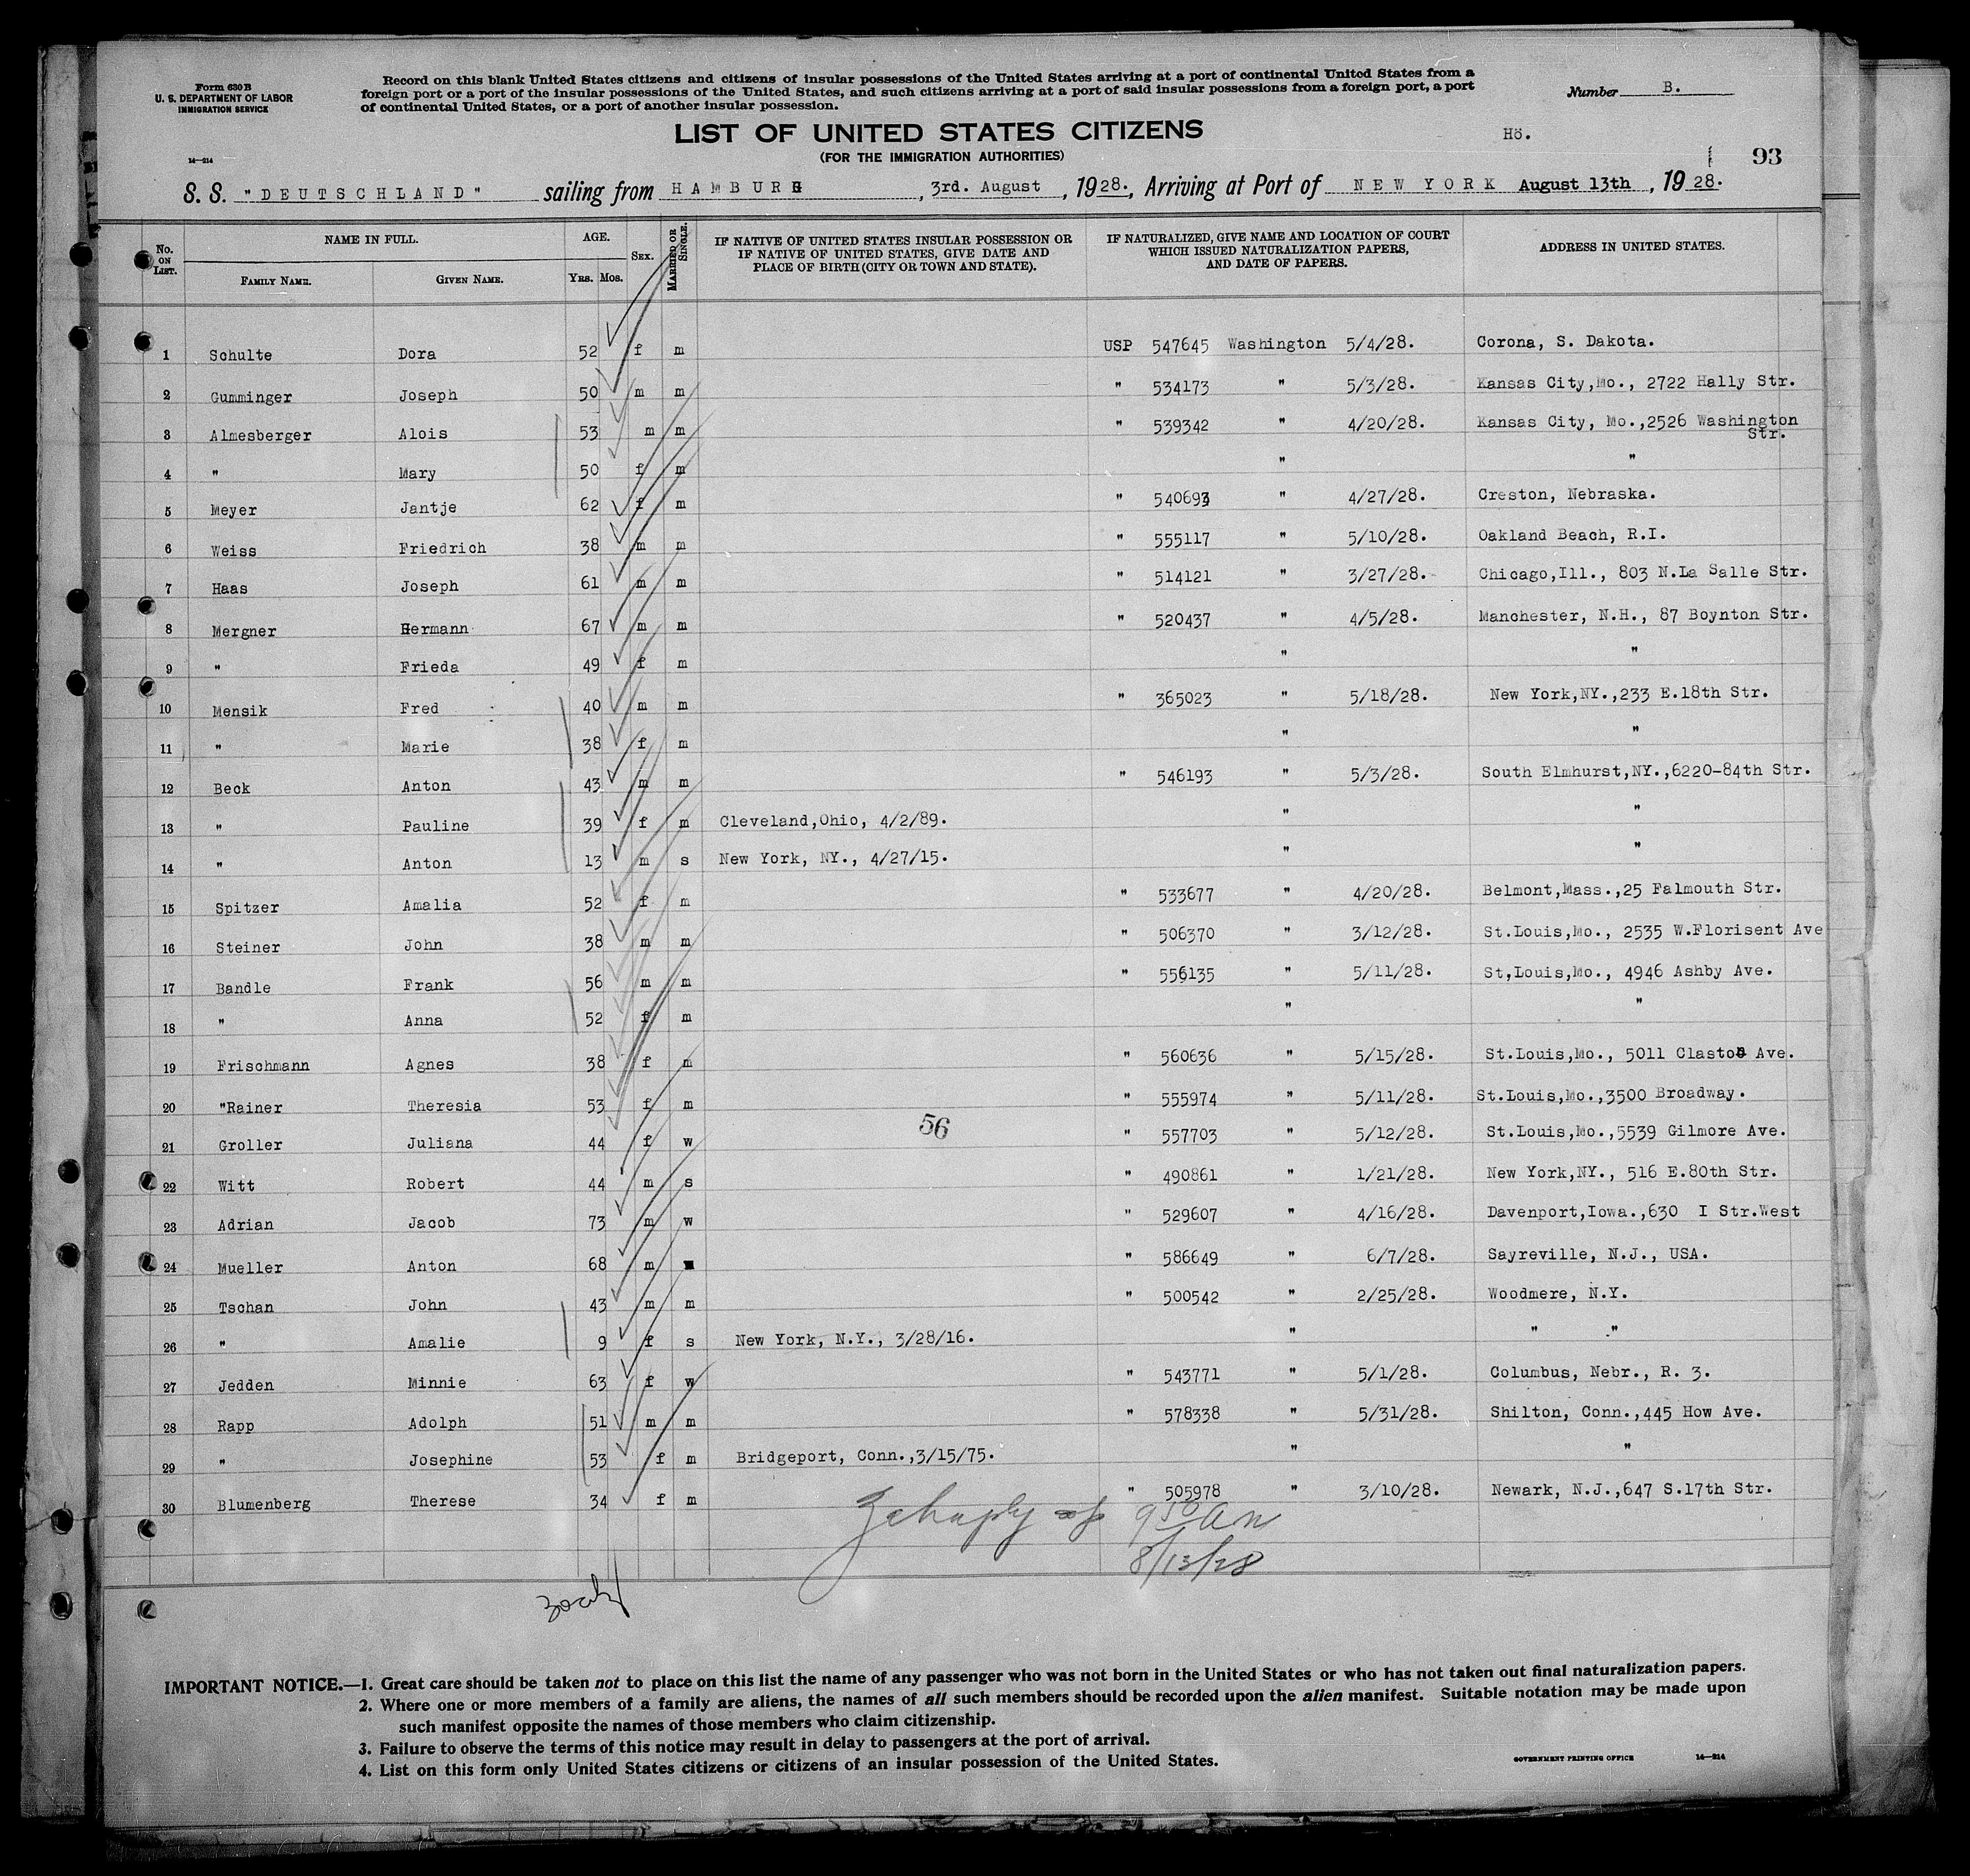 Form 630 B
U. S. DEPARTMENT OF LABOR
IMMIGRATION SERVICE
Record on this blank United States citizens and citizens of insular possessions of the United States arriving at a port of continental United States from a
foreign port or a port of the insular possessions of the United States, and such citizens arriving at a port of said insular possessions from a foreign port, a port
of continental United States, or a port of another insular possession.
Number B.
LIST OF UNITED STATES CITIZENS
Hö.
(FOR THE IMMIGRATION AUTHORITIES)
14—214
93
S. S. "DEUTSCHLAND" sailing from HAMBURG, 3rd. August, 1928., Arriving at Port of NEW YORK August 13th, 1928.
No. ON LIST. NAME IN FULL. AGE. SEX. MARRIED OR SINGLE. IF NATIVE OF UNITED STATES INSULAR POSSESSION OR IF NATIVE OF UNITED STATES, GIVE DATE AND PLACE OF BIRTH (CITY OR TOWN AND STATE). IF NATURALIZED, GIVE NAME AND LOCATION OF COURT WHICH ISSUED NATURALIZATION PAPERS, AND DATE OF PAPERS. ADDRESS IN UNITED STATES.
FAMILY NAME. GIVEN NAME. YRS. MOS.
1 Schulte Dora 52 f m USP 547645 Washington 5/4/28. Corona, S. Dakota.
2 Gumminger Joseph 50 m m " 534173 " 5/3/28. Kansas City,Mo., 2722 Hally Str.
3 Almesberger Alois 53 m m " 539342 " 4/20/28. Kansas City, Mo.,2526 Washington Str.
4 " Mary 50 f m " "
5 Meyer Jantje 62 f m " 540693 " 4/27/28. Creston, Nebraska.
6 Weiss Friedrich 38 m m " 555117 " 5/10/28. Oakland Beach, R.I.
7 Haas Joseph 61 m m " 514121 " 3/27/28. Chicago,Ill., 803 N.La Salle Str.
8 Mergner Hermann 67 m m " 520437 " 4/5/28. Manchester, N.H., 87 Boynton Str.
9 " Frieda 49 f m " "
10 Mensik Fred 40 m m " 365023 " 5/18/28. New York,NY.,233 E.18th Str.
11 " Marie 38 f m " "
12 Beck Anton 43 m m " 546193 " 5/3/28. South Elmhurst,NY.,6220-84th Str.
13 " Pauline 39 f m Cleveland,Ohio, 4/2/89. " "
14 " Anton 13 m s New York, NY., 4/27/15. " "
15 Spitzer Amalia 52 f m " 533677 " 4/20/28. Belmont,Mass.,25 Falmouth Str.
16 Steiner John 38 m m " 506370 " 3/12/28. St.Louis,Mo., 2535 W.Florisent Ave
17 Bandle Frank 56 m m " 556135 " 5/11/28. St,Louis,Mo., 4946 Ashby Ave.
18 " Anna 52 f m " "
19 Frischmann Agnes 38 f m " 560636 " 5/15/28. St.Louis,Mo., 5011 Claston Ave.
20 "Rainer Theresia 53 f m " 555974 " 5/11/28. St.Louis,Mo.,3500 Broadway.
56
21 Groller Juliana 44 f w " 557703 " 5/12/28. St.Louis,Mo.,5539 Gilmore Ave.
22 Witt Robert 44 m s " 490861 " 1/21/28. New York,NY., 516 E.80th Str.
23 Adrian Jacob 73 m w " 529607 " 4/16/28. Davenport,Iowa.,630 I Str.West
24 Mueller Anton 68 m " 586649 " 6/7/28. Sayreville, N.J., USA.
25 Tschan John 43 m m " 500542 " 2/25/28. Woodmere, N.Y.
26 " Amalie 9 f s New York, N.Y., 3/28/16. " " "
27 Jedden Minnie 63 f w " 543771 " 5/1/28. Columbus, Nebr., R. 3.
28 Rapp Adolph 51 m m " 578338 " 5/31/28. Shilton, Conn.,445 How Ave.
29 " Josephine 53 f m Bridgeport, Conn.,3/15/75. " "
30 Blumenberg Therese 34 f m " 505978 " 3/10/28. Newark, N.J.,647 S.17th Str.
9 50 am
8/13/28
IMPORTANT NOTICE.—1. Great care should be taken not to place on this list the name of any passenger who was not born in the United States or who has not taken out final naturalization papers.
2. Where one or more members of a family are aliens, the names of all such members should be recorded upon the alien manifest. Suitable notation may be made upon
such manifest opposite the names of those members who claim citizenship.
3. Failure to observe the terms of this notice may result in delay to passengers at the port of arrival.
4. List on this form only United States citizens or citizens of an insular possession of the United States.
GOVERNMENT PRINTING OFFICE 14—214